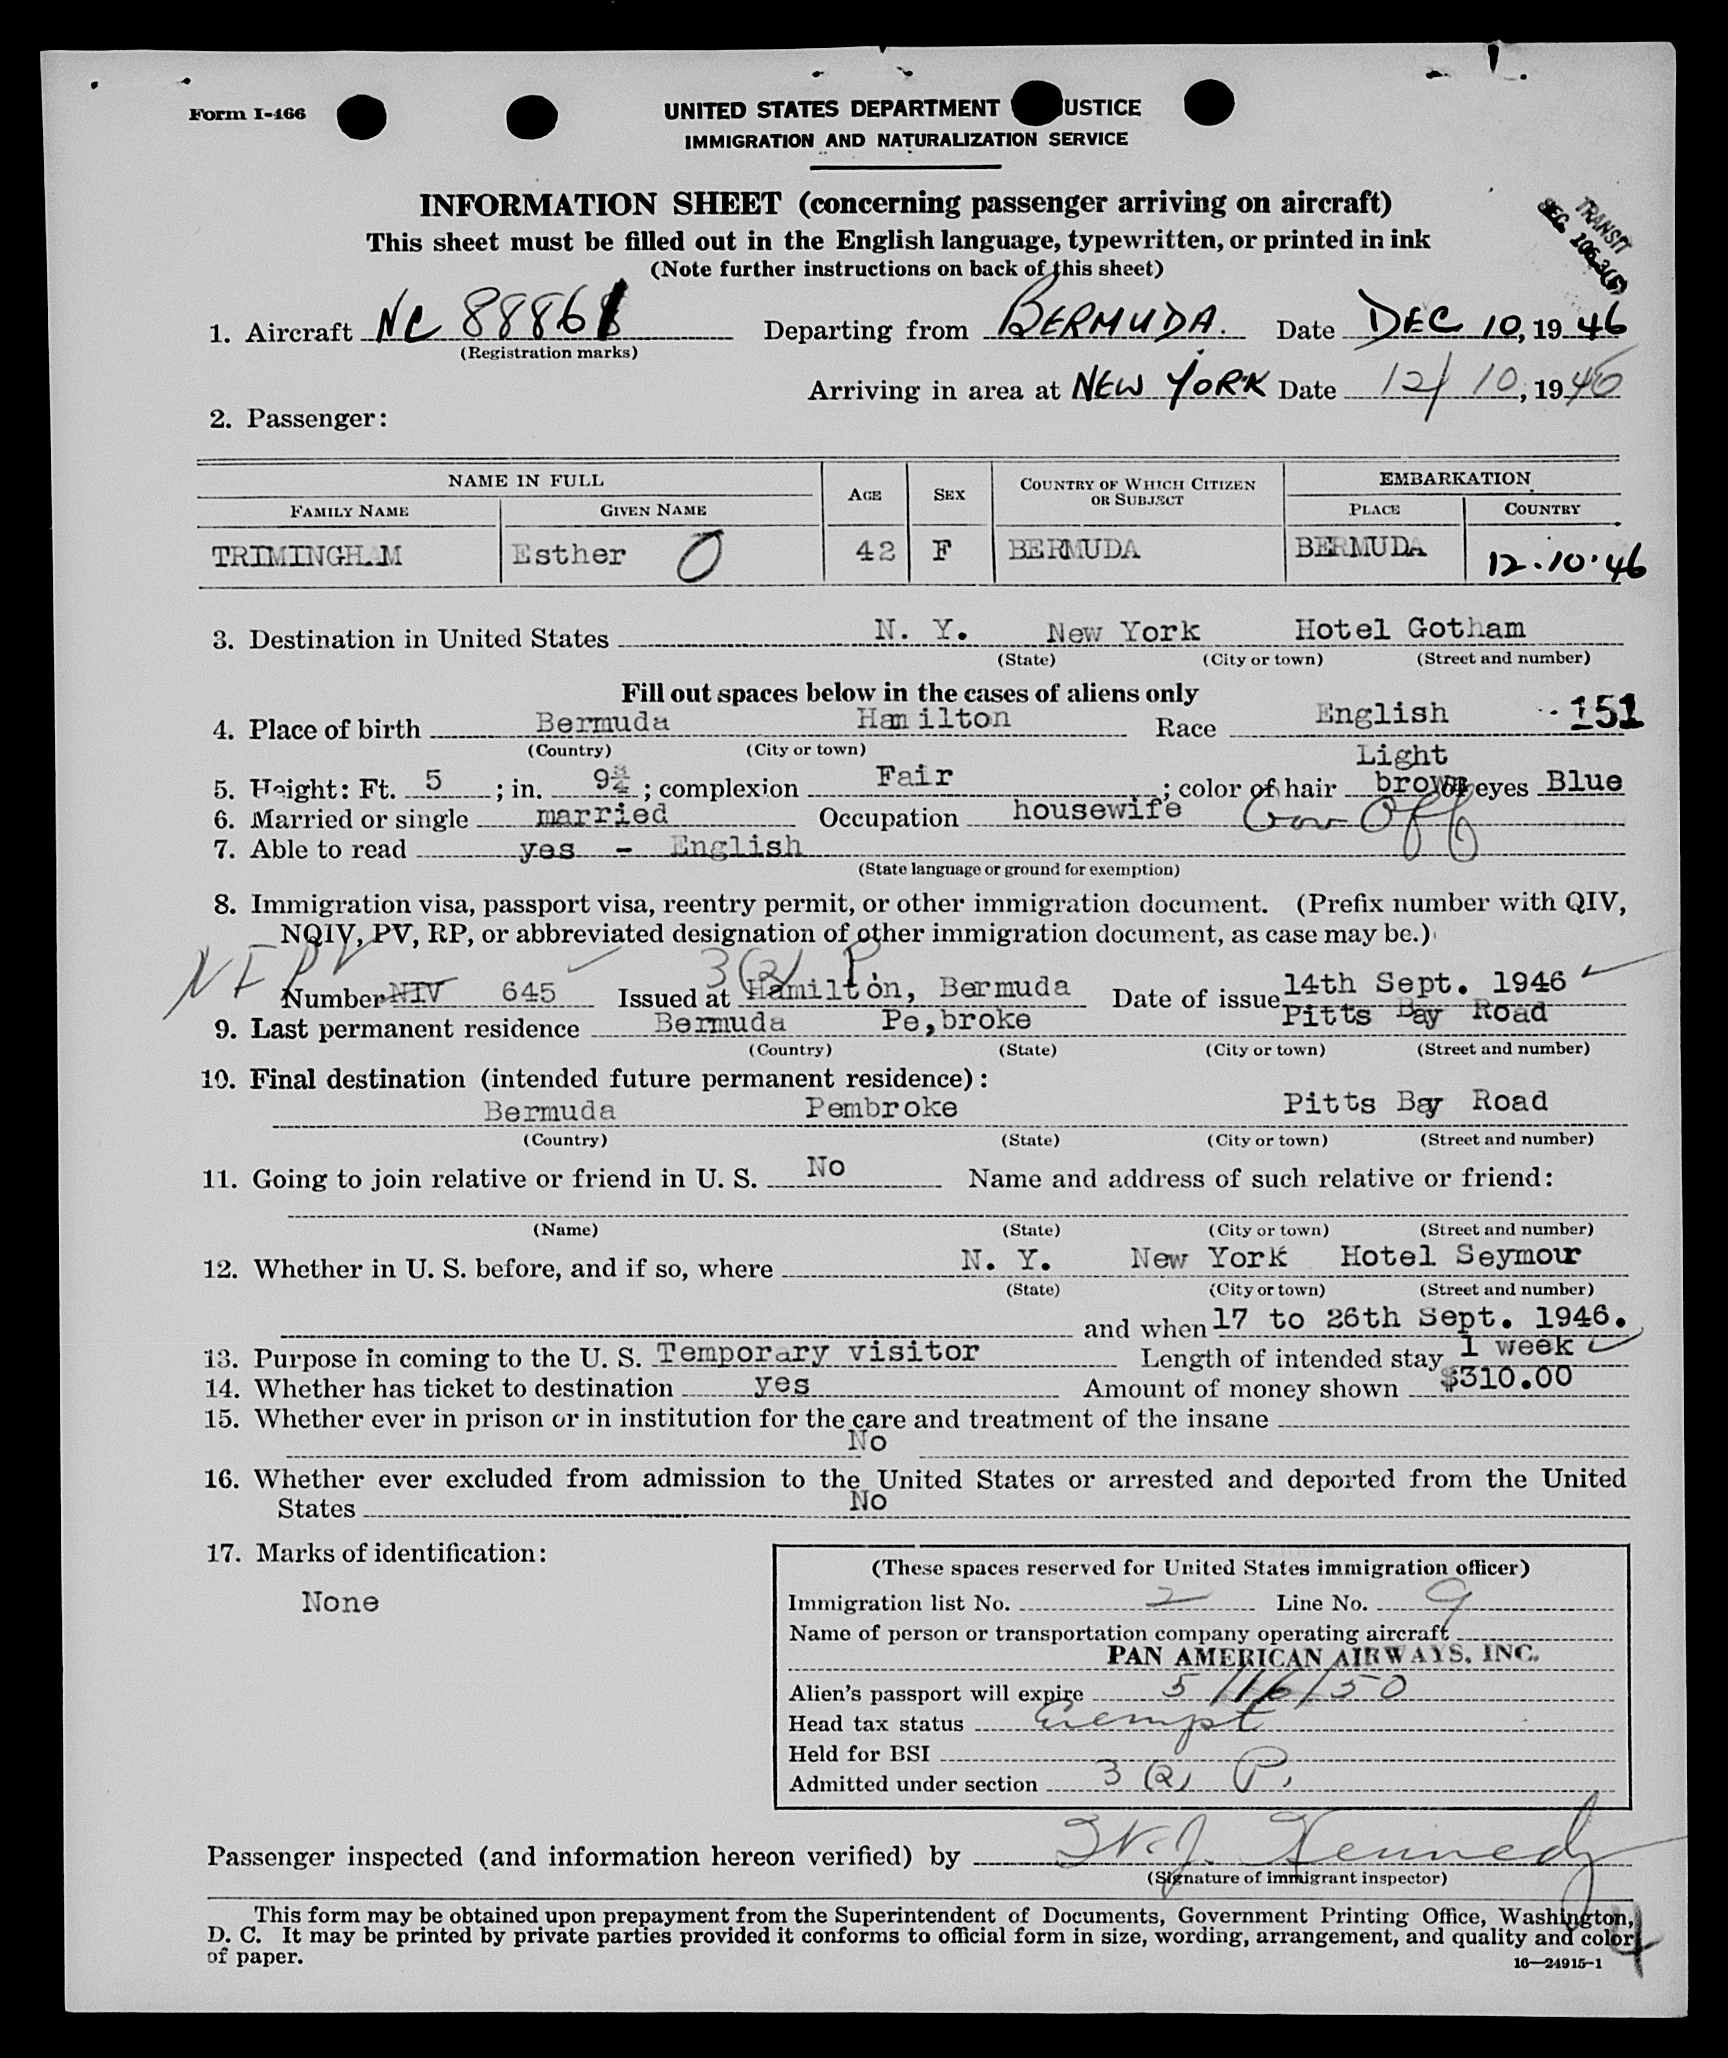 Form I-466
UNITED STATES DEPARTMENT USTICE
IMMIGRATION AND NATURALIZATION SERVICE
INFORMATION SHEET (concerning passenger arriving on aircraft)
This sheet must be filled out in the English language, typewritten, or printed in ink
(Note further instructions on back of this sheet)
TRANSIT
SEC. 106.3(b)
1. Aircraft NC 8886 Departing from BERMUDA. Date DEC 10, 19 46
(Registration marks)
Arriving in area at NEW YORK Date 12/10, 19 46
2. Passenger:
NAME IN FULL AGE SEX COUNTRY OF WHICH CITIZEN OR SUBJECT EMBARKATION
FAMILY NAME GIVEN NAME PLACE COUNTRY
TRIMINGHAM Esther O 42 F BERMUDA BERMUDA 12.10.46
3. Destination in United States N. Y. New York Hotel Gotham
(State) (City or town) (Street and number)
Fill out spaces below in the cases of aliens only
4. Place of birth Bermuda Hamilton Race English 151
(Country) (City or town)
Light
5. Height: Ft. 5 ; in. 9¾ ; complexion Fair ; color of hair brown eyes Blue
6. Married or single married Occupation housewife Gov Off
7. Able to read yes - English
(State language or ground for exemption)
8. Immigration visa, passport visa, reentry permit, or other immigration document. (Prefix number with QIV,
NQIV, PV, RP, or abbreviated designation of other immigration document, as case may be.)
3(2) P
Number NIV 645 Issued at Hamilton, Bermuda Date of issue 14th Sept. 1946
9. Last permanent residence Bermuda Pe,broke Pitts Bay Road
(Country) (State) (City or town) (Street and number)
10. Final destination (intended future permanent residence):
Bermuda Pembroke Pitts Bay Road
(Country) (State) (City or town) (Street and number)
11. Going to join relative or friend in U. S. No Name and address of such relative or friend:
(Name) (State) (City or town) (Street and number)
12. Whether in U. S. before, and if so, where N. Y. New York Hotel Seymour
(State) (City or town) (Street and number)
and when 17 to 26th Sept. 1946.
13. Purpose in coming to the U. S. Temporary visitor Length of intended stay 1 week
14. Whether has ticket to destination yes Amount of money shown $310.00
15. Whether ever in prison or in institution for the care and treatment of the insane
No
16. Whether ever excluded from admission to the United States or arrested and deported from the United
States No
17. Marks of identification:
None
(These spaces reserved for United States immigration officer)
Immigration list No. 2 Line No. 9
Name of person or transportation company operating aircraft
PAN AMERICAN AIRWAYS, INC.
Alien's passport will expire 5/16/50
Head tax status Exempt
Held for BSI
Admitted under section 3 (2) P.
Passenger inspected (and information hereon verified) by Kennedy
(Signature of immigrant inspector)
This form may be obtained upon prepayment from the Superintendent of Documents, Government Printing Office, Washington,
D. C. It may be printed by private parties provided it conforms to official form in size, wording, arrangement, and quality and color
of paper.
16—24915-1
4